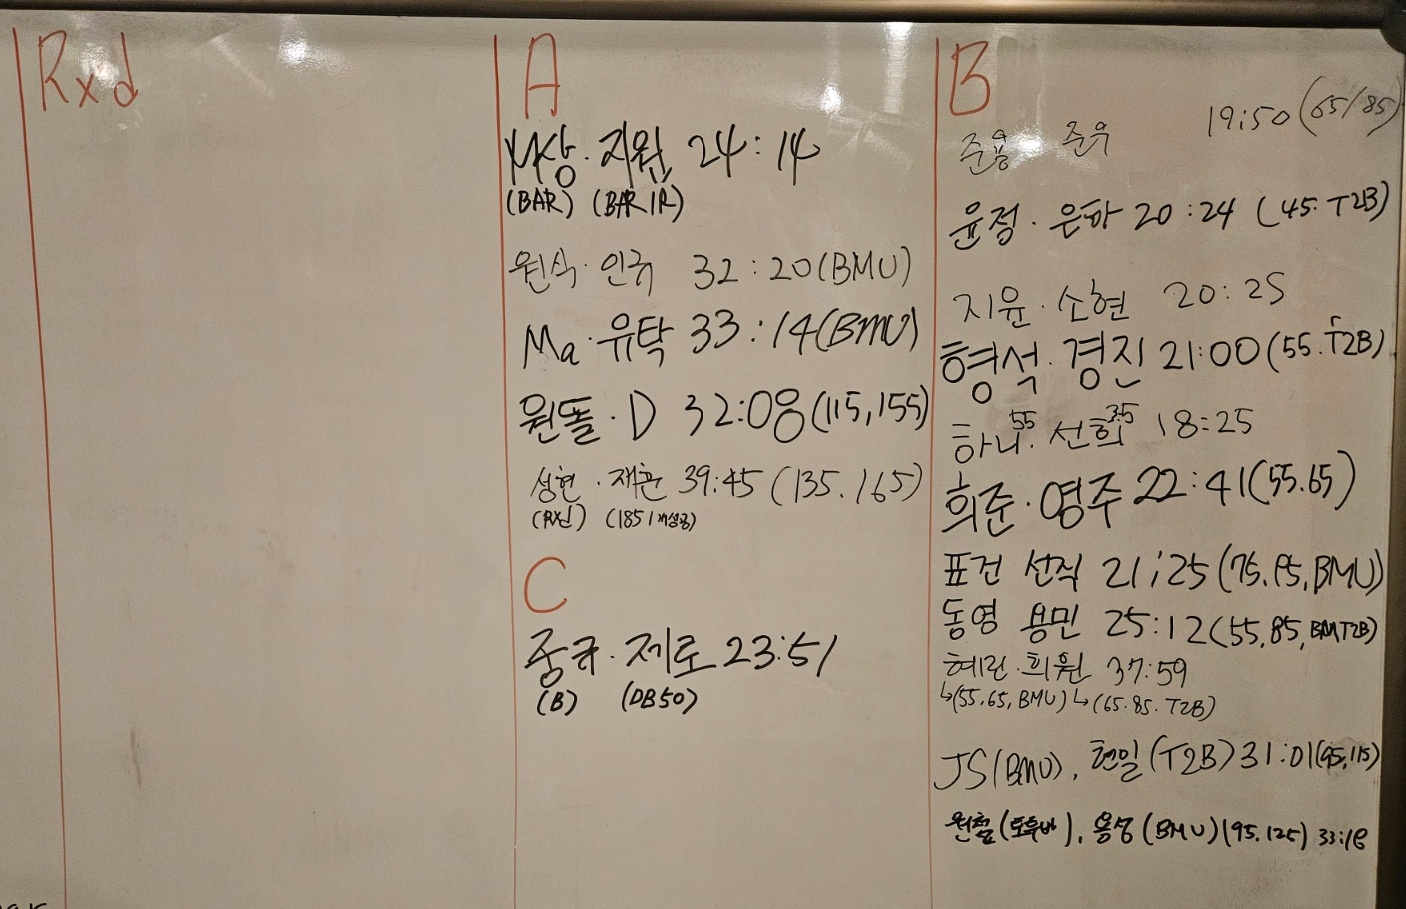 Rxd
A
MK상 · 지원 24:14
(BAR) (BAR 1R)
원식 · 인규 32:20(BMU)
Ma · 유탁 33:14(BMU)
원똘 · D 32:08(115,155)
성현 · 재관 39:45 (135.165)
(185 1개성공)
C
중규 · 제로 23:51
(B) (DB50)
B
준용 준우 19:50(65/85)
윤정 · 은파 20:24 (45. T2B)
지윤 · 소현 20:25
형석 · 경진 21:00(55.T2B)
하니55. 선희35 18:25
희준 · 영주 22:41(55.65)
표건 선직 21:25(75.95,BMU)
동영 용민 25:12(55,85,BMT2B)
혜린 · 희원 37:59
↳(55.65, BMU) ↳(65.85.T2B)
JS(BMU), 현일(T2B)31:01(95,115)
원철(토투바), 용성(BMU)(95.125) 33:18